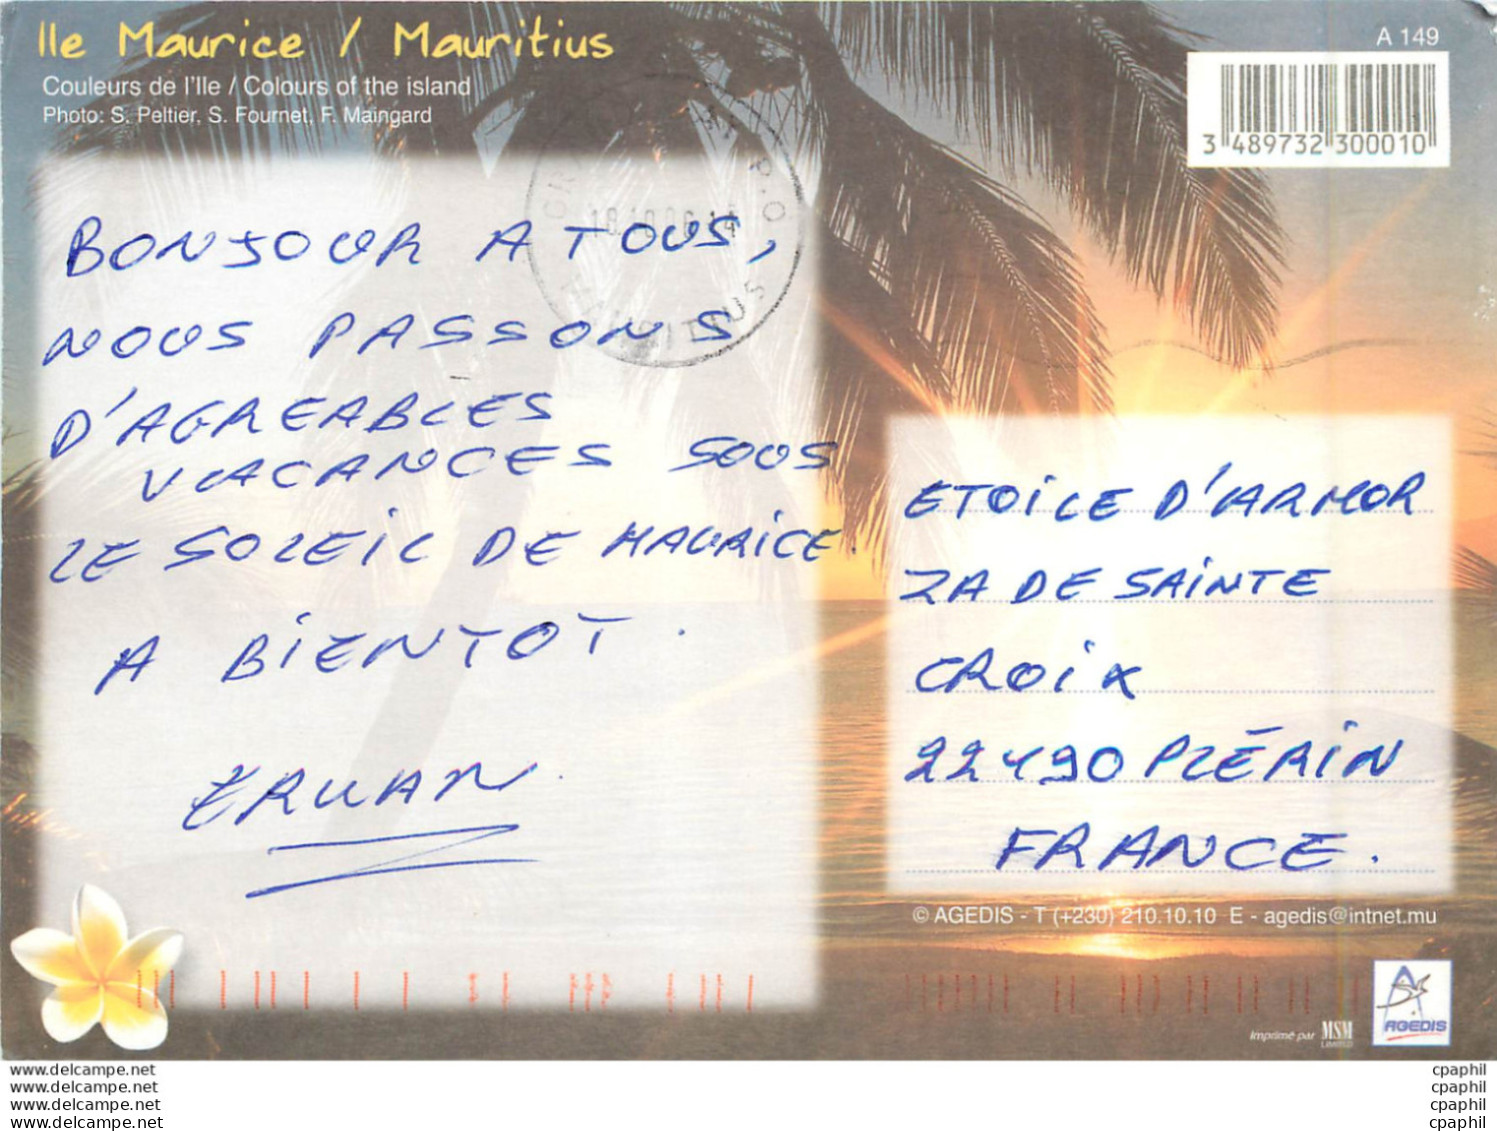 Ile Maurice / Mauritius
Couleurs de l'Ile / Colours of the island
Photo: S. Peltier, S. Fournet, F. Maingard
A 149
3 489732 300010
MAURITIUS
BONJOUR A TOUS,
NOUS PASSONS
D'AGREABLES
VACANCES SOUS
LE SOLEIL DE MAURICE.
A BIENTOT.
ERWAN.
ETOILE D'ARMOR
ZA DE SAINTE
CROIX
22490 PLÉRIN
FRANCE.
© AGEDIS - T (+230) 210.10.10 E - agedis@intnet.mu
Imprimé par MSM
LIMITED
AGEDIS
www.delcampe.net
www.delcampe.net
www.delcampe.net
www.delcampe.net
cpaphil
cpaphil
cpaphil
cpaphil